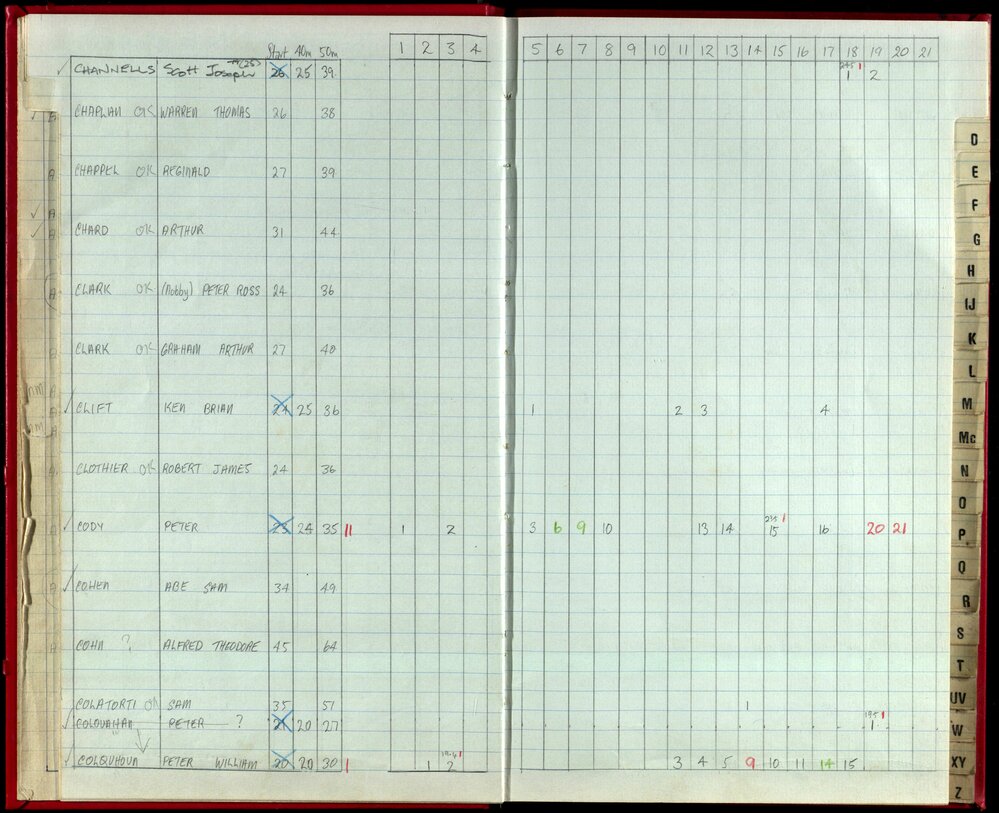 Start 40m 50m 1 2 3 4 5 6 7 8 9 10 11 12 13 14 15 16 17 18 19 20 21
✓ CHANNELLS Scott Joseph (25) 26 25 39 24.5 1 1 2
CHAPMAN OK WARREN THOMAS 26 38
CHAPPEL OK REGINALD 27 39
CHARD OK ARTHUR 31 44
CLARK OK (Nobby) PETER ROSS 24 36
CLARK OK GRAHAM ARTHUR 27 40
✓ CLIFT KEN BRIAN 25 36 1 2 3 4
CLOTHIER OK ROBERT JAMES 24 36
✓ CODY PETER 23 24 35 11 1 2 3 6 9 10 13 14 23.5 1 15 16 20 21
✓ COHEN ABE SAM 34 49
COHN ? ALFRED THEODORE 45 64
COLATORTI OK SAM 35 51 1
✓ PETER ? 21 20 27 19.5 1 1
✓ COLQUHOUN PETER WILLIAM 20 20 30 1 1 19.6 1 2 3 4 5 9 10 11 14 15
D
E
F
G
H
IJ
K
L
M
Mc
N
O
P
Q
R
S
T
UV
W
XY
Z